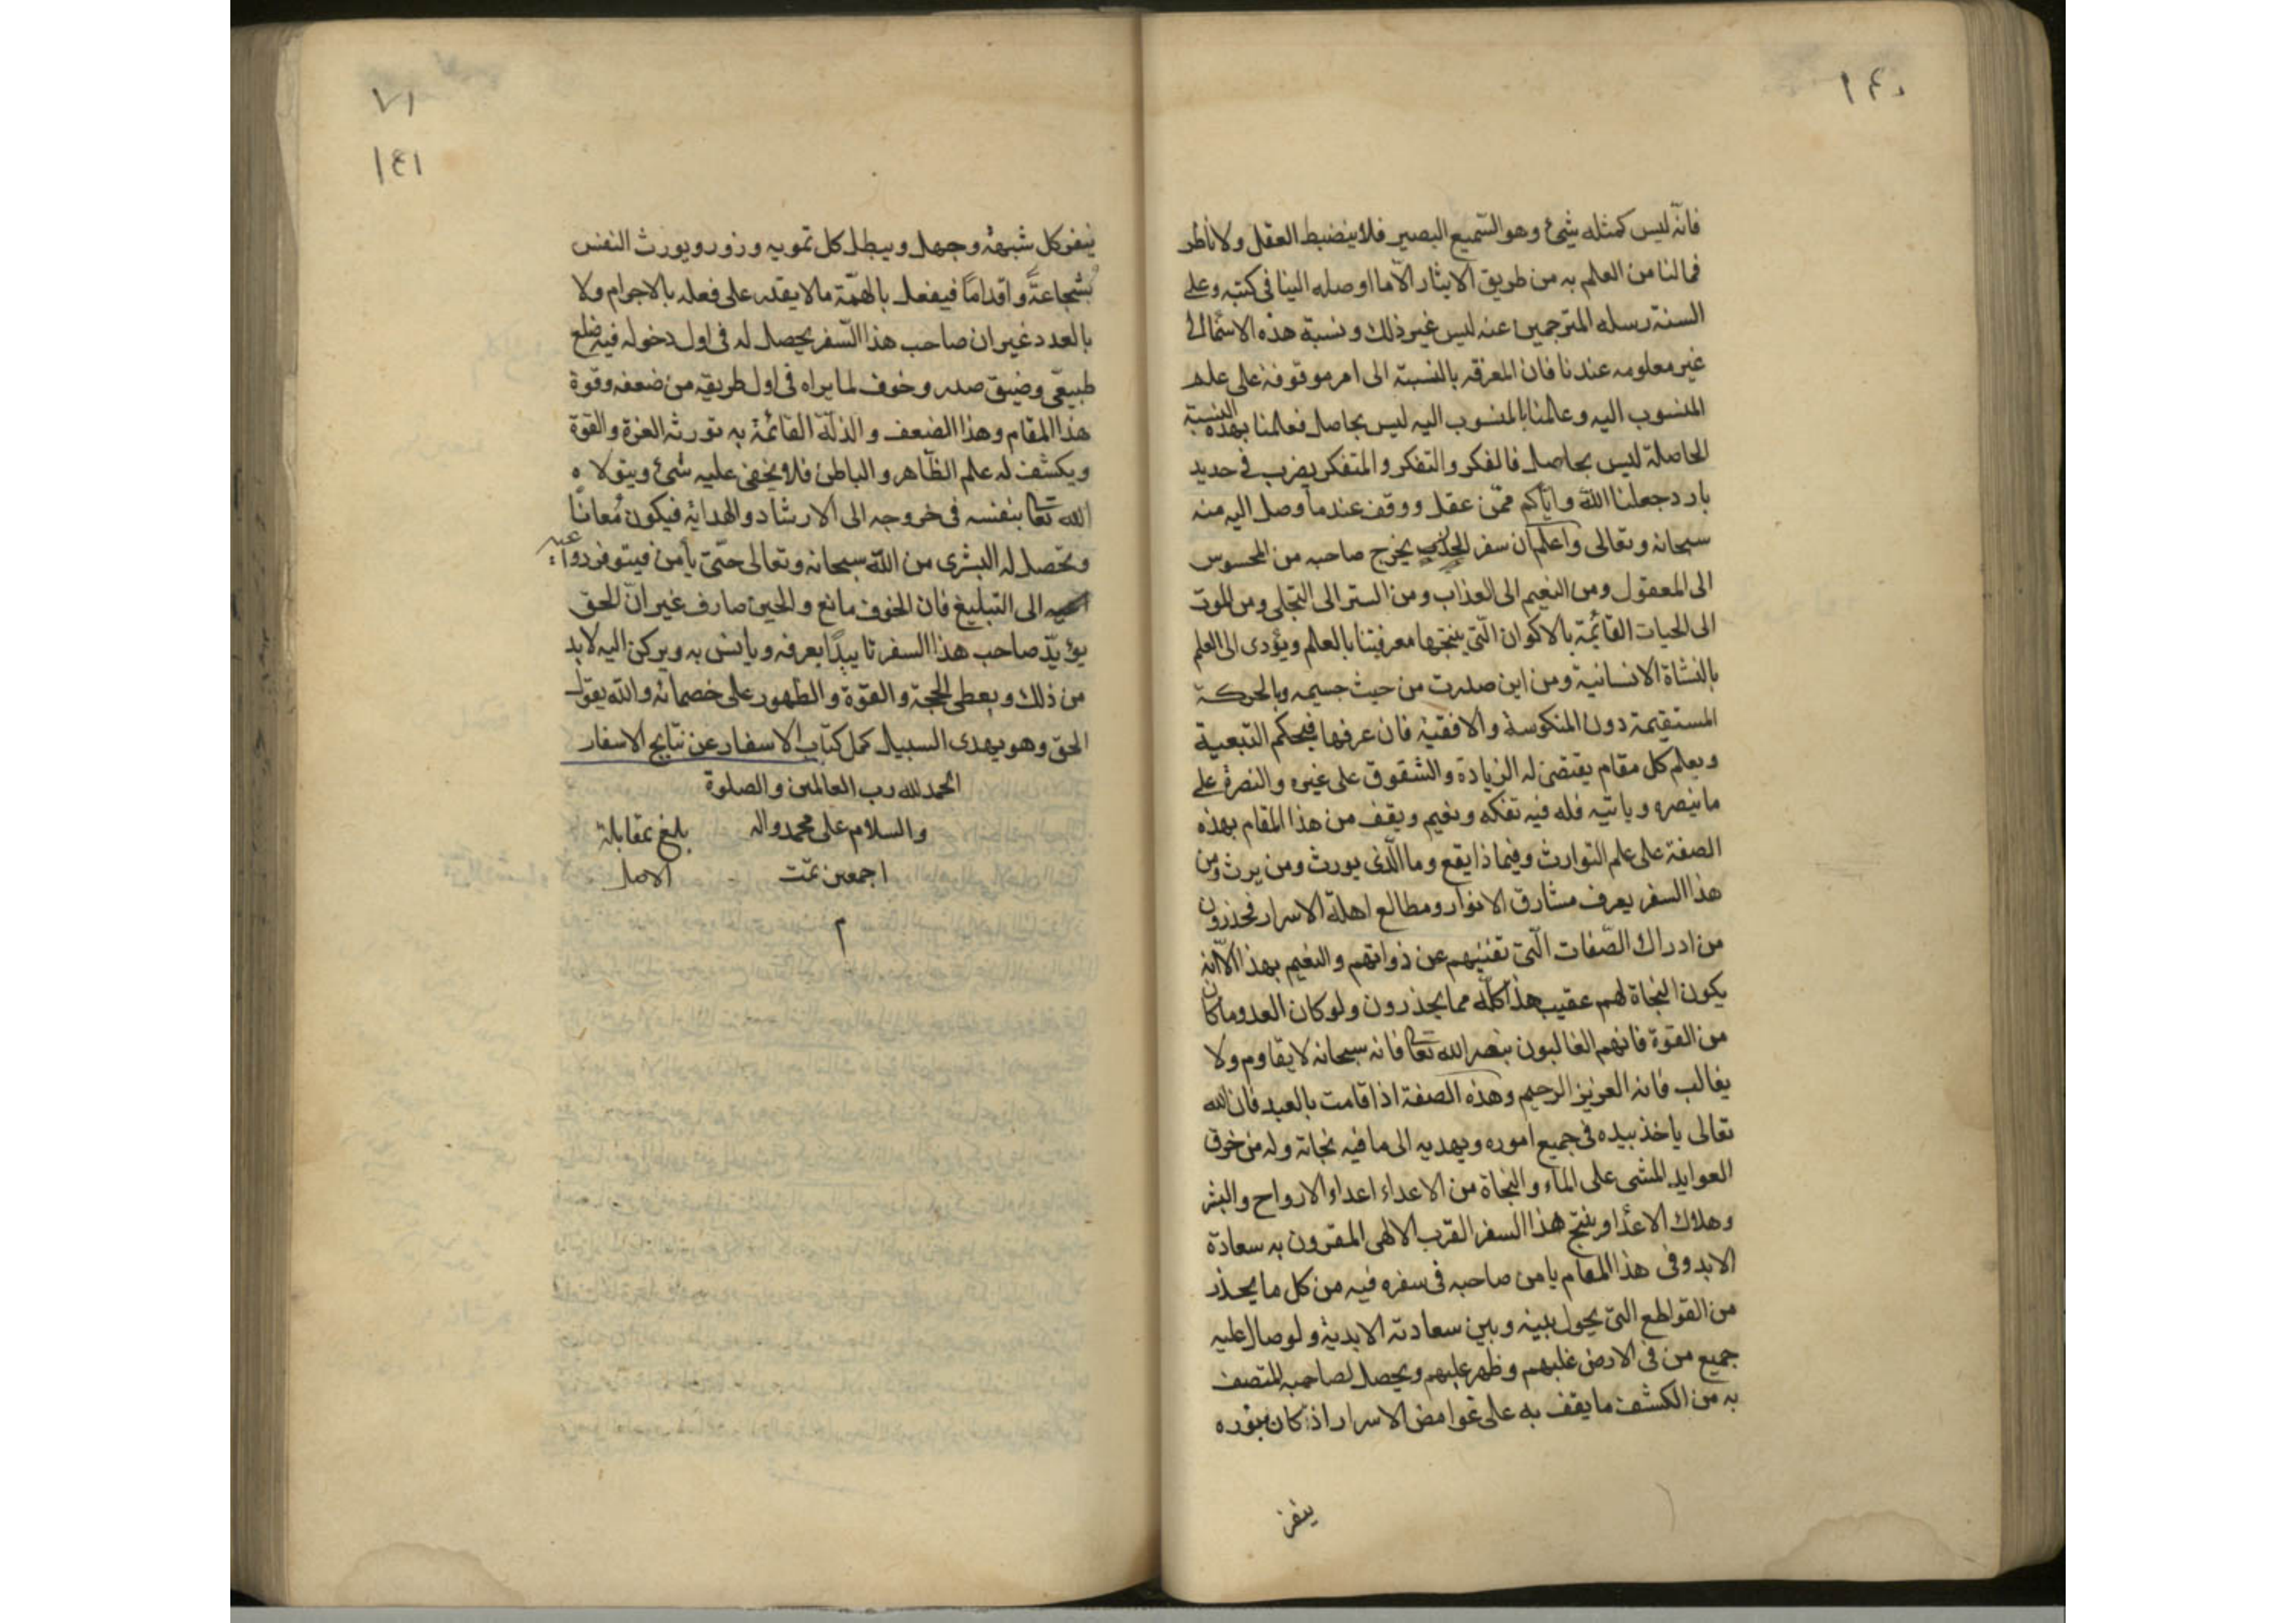 ١٤٠
فانّه ليس كمثله شئ وهو السّميع البصير فلا ينضبط العقل ولا ناظر
فما لنا من العلم به من طريق الايثار الّا ما اوصله الينا فى كتبه وعلى
السنة رسله المترجمين عنه ليس غير ذلك ونسبة هذه الاسماء الى
غير معلومه عندنا فان المعرفه بالنسبة الى امر موقوفة على علم
المنسوب اليه وعلمنا بالمنسوب اليه ليس بحاصل فعلمنا بهذه النسبة
الحاصلة ليس بحاصل فالفكر والتفكر والمتفكر يضرب فى حديد
بارد جعلنا اللّه وايّاكم ممّن عقل ووقف عند ما وصل اليه منه
سبحانه وتعالى واعلم ان سفر يخرج صاحبه من المحسوس
الى المعقول ومن النعيم الى العذاب ومن الستر الى التجلى ومن الموت
الى الحيات القائمة بالاكوان الّتى ينتجها معرفتنا بالعلم ويؤدى الى العلم
بالنشاة الانسانية ومن اين صدرت من حيث جسيمه وبالحركة
المستقيمة دون المنكوسة والافقية فان عرفها فيحكم التبعية
ويعلم كل مقام يقتضى له الزيادة والشقوق على غيره والنصرة على
ما ينصره وياتيه فله فيه تفكه ونعيم ويقف من هذا المقام بهذه
الصفة على علم التوارث وفيما ذا يقع وما الّذى يورث ومن يرث ومن
هذا السفر يعرف مشارق الانوار ومطالع اهلة الاسرار فحذرون
من ادراك الصّفات الّتى تفنيهم عن ذواتهم والنعيم بهذا الّا انه
يكون النجاة لهم عقيب هذا كلّه مما يحذرون ولو كان العدو ما كان
من القوة فانهم الغالبون بنصر الله تعا فانه سبحانه لا يقاوم ولا
يغالب فانه العزيز الرحيم وهذه الصفة اذا قامت بالعبد فان الله
تعالى ياخذ بيده فى جميع اموره ويهديه الى ما فيه نجاته وله من خرق
العوايد المشى على الماء والنجاة من الاعداء اعداء الارواح والبشر
وهلاك الاعدا وينتج هذا السفر القرب الالهى المقرون به سعادة
الابد وفى هذا المقام يامن صاحبه فى سفره فيه من كل ما يحذر
من القواطع التى يحول بينه وبين سعادته الابدية ولو صال عليه
جميع من فى الارض غلبهم وظهر عليهم ويحصل لصاحبه المتصف
به من الكشف ما يقف به على غوامض الاسرار اذ كان بنوره
ينفر
٧١
١٤١
ينفر كل شبهة وجهل ويبطل كل تمويه وزور ويورث النفس
شجاعةً واقداماً فيفعل بالهمّة ما لا يقدر على فعله بالاجرام ولا
بالعدد غير ان صاحب هذا السّفر يحصل له فى اول دخوله فيه
طبيعى وضيق صدر وخوف لما يراه فى اول طريقه من ضعفه وقوة
هذا المقام وهذا الضعف والذلّة القائمة به تورثه العزة والقوّة
ويكشف له علم الظّاهر والباطن فلا يخفى عليه شئ ويتولا ه
الله تعا بنفسه فى خروجه الى الارشاد والهداية فيكون مُعاناً
وتحصل له البشرى من اللّه سبحانه وتعالى حتّى يأمن فيتوفر دواعيه
الى التبليغ فان الخوف مانع والحين صارف غير انّ للحق
يؤيّد صاحب هذا السفر تاييدًا يعرفه ويانس به ويركن اليه لابد
من ذلك ويعطى الحجة والقوّة والظهور على خصمائه واللّه يقول
الحق وهو يهدى السبيل كمل كتاب الاسفار عن نتايج الاسفار
الحمد لله رب العالمين والصلوة
والسلام على محمد واله
اجمعين تمّت
م
بلغ بمقابلة
الاصل